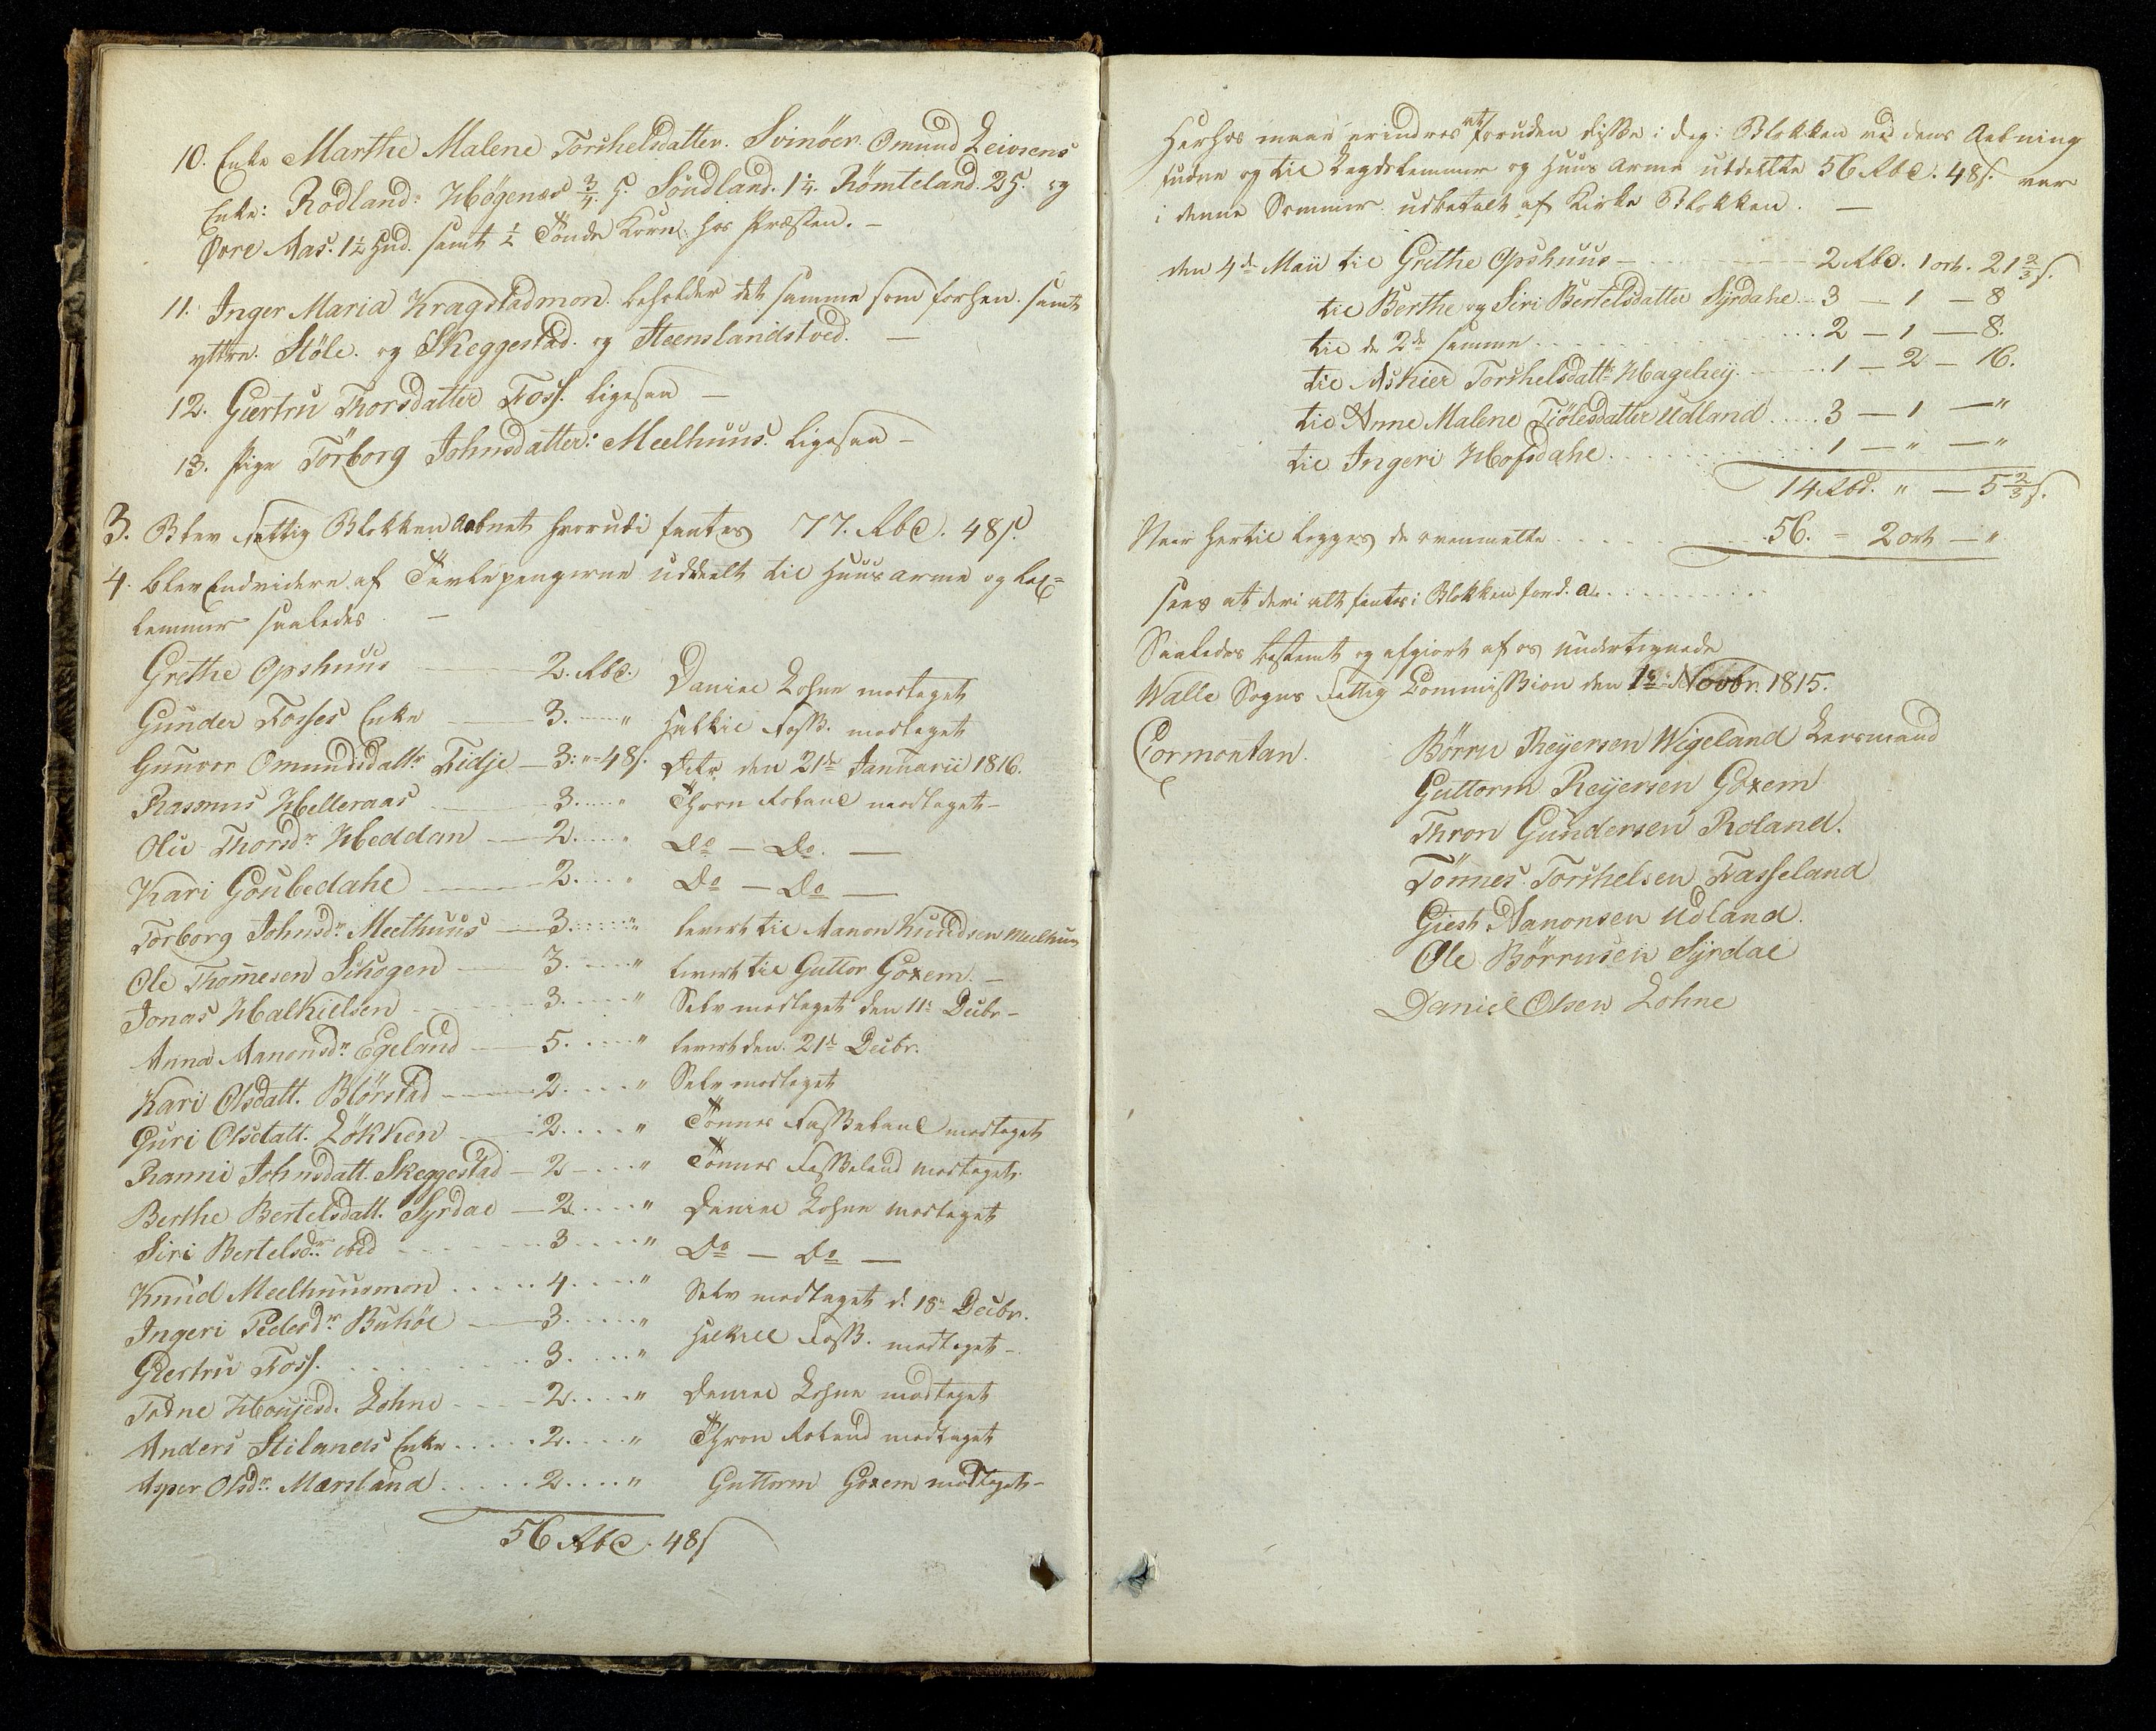 10. Enke Marthe Malene Torkelsdatter. Svinöer. Omund Leivsens
Enke: Rödland: Högenæs 3/4 H. Söudland. 1 1/4. Römteland. 2 H. og
Øvre Aas. 1 1/2 Hud. samt 1/2 Tönde Korn hos Præsten. —
11. Inger Maria Kragstadmon. beholder det samme som forhen. samt
yttre. Støle. og Skeggestad. og Steenslandstved. —
12. Giertru Thorsdatter Foss. ligesaa —
13. Pige Törborg Johnsdatter: Meelhuus. ligesaa —
3. Blev Fattig Blokken aabnet hvorudi fantes 77. Rbd. 48 s.
4. Blev Endvidere af Tavlepengerne uddeelt til Huusarme og Læg=
lemmer saaledes. —
Grethe Opshuus — 2. Rbd. Daniel Lohne modtaget
Gunder Fosses Enke — 3. — " Halkil Foss. modtaget
Gunvor Omundsdattr. Fidje — 3: " 48 s. Dito den 21de Januarii 1816.
Rasmus Helleraas — 3. — " Thron Roland modtaget —
Oliv Thorsdr. Heddan — 2. — " Do — Do. —
Kari Goubedahl — 2. — " Do — Do —
Torborg Johnsdr. Meelhuus — 3. " levert til Aanon Knudsen Meelhuus
Ole Thomesen Schogen — 3. — " levert til Guttor Goxem. —
Jonas Halkielsen — 3. " Selv modtaget den 11te Decbr —
Anna Aanonsdr. Egeland — 5. " levert den 21de Decbr.
Kari Olsdatt. Blörstad — 2. " Selv modtaget
Guri Olsdatt. Lökken — 2. " Tönnes Fasseland modtaget
Ranni Johnsdatt. Skeggestad — 2 — " Tönnes Fasseland modtaget.
Berthe Bertelsdatt. Syrdal — 2. " Daniel Lohne modtaget
Siri Bertelsdr. ibid — 3 " Do — Do —
Knud Meelhuusmon — 4. " Selv modtaget d. 18de Decbr.
Ingeri Pedersdr. Buhöl — 3. " Halkill Foss. modtaget —
Giertru Foss. 3. "
Trine Honjesd. Lohne — 2. " Daniel Lohne modtaget
Anders Stilands Enke 2. " Thron Roland modtaget
Asper Olsdr. Mærsland 2. " Guttorm Goxem modtaget —
56 Rbd. 48 s
Herhos maae erindres at foruden disse i dag i Blokken ved dens Aabning
fundne og til Lægdslemmer og Huus Arme uddeelte 56 Rbd. 48 s. var
i denne Sommer udbetalt af Kirke Blokken. —
den 4de Maii til Grethe Opshuus — 2 Rbd. 1 ort. 21 2/3 s.
til Berthe og Siri Bertelsdatter Syrdahl — 3 — 1 — 8
til de 2de samme 2 — 1 — 8.
til Askier Torkelsdattr Hageliej. 1 — 2 — 16.
til Anne Malene Tiölesdatter Udland 3 — 1 — "
til Ingeri Hofsdahl 1 — " — "
14 Rbd. " — 5 2/3 s.
Naar hertil legges de ovenmelte 56. = 2 ort — "
sees at deri alt fantes i Blokken
Saaledes bestemt og afgiort af os undertegnede
Walle Sogns Fattig Commission den 1te Novbr. 1815.
Cormontan. Börru Reyersen Wigeland Lensmand
Guttorm Reyersen Goxem
Thron Gundersen Roland.
Tönnes Torkelsen Fasseland
Giest Aanonsen Udland.
Ole Börrusen Syrdal
Daniel Olsen Lohne